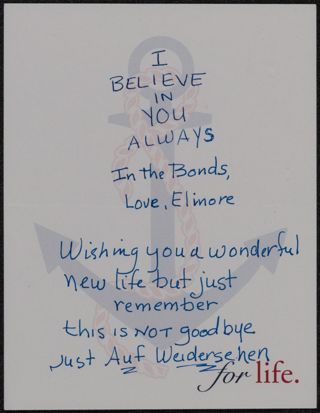 I
BELIEVE
IN
YOU
ALWAYS
In the Bonds,
Love, Elinore
Wishing you a wonderful
new life but just
remember
this is NOT goodbye
just Auf Weidersehen
for life.